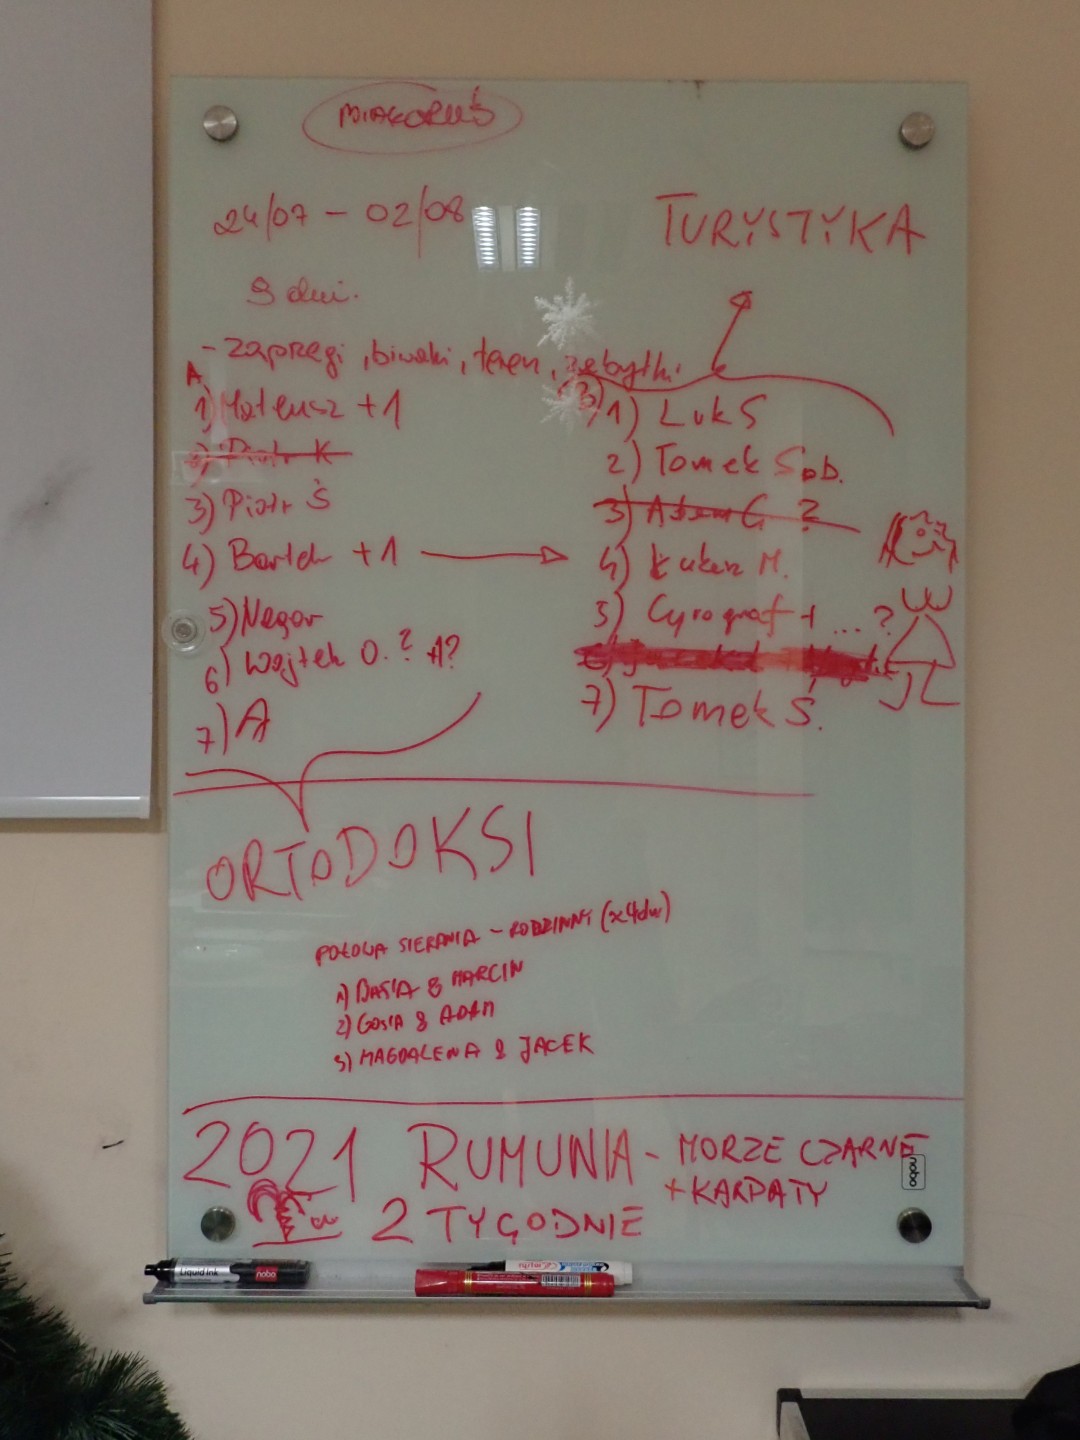 24/07 - 02/08
TURYSTYKA
9 dni.
- zaprzęgi, biwaki, teren, zabytki.
A
1) Mateusz +1
2) Piotr K
3) Piotr Ś
4) Bartek +1
5) Negor
6) Wojtek O. ? +1?
7) A
B)
1) Luk S
2) Tomek Sob.
3) Adam G ?
4) Łukasz M.
5) Cyrograf + ... ?
7) Tomek Ś.
ORTODOKSI
POŁOWA SIERPNIA - RODZINNY (x4dni)
1) BASIA & MARCIN
2) GOSIA & ADAM
3) MAGDALENA & JACEK
2021 RUMUNIA - MORZE CZARNE
+ KARPATY
2 TYGODNIE
nobo
Liquid ink
nobo